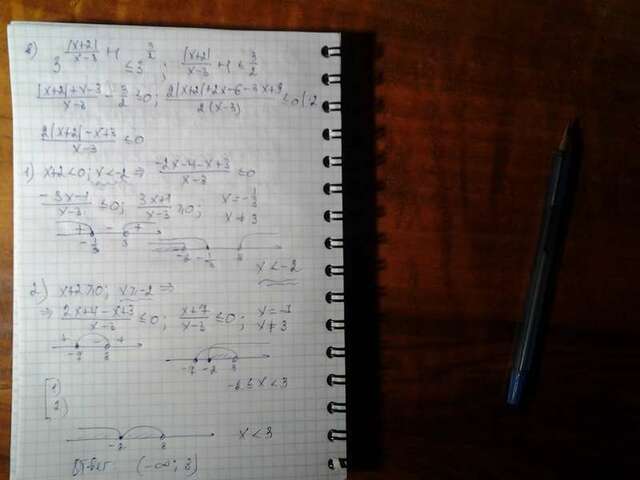 3^(|x+2|/(x-3) + 1) ≤ 3^(3/2) ; |x+2|/(x-3) + 1 ≤ 3/2
(|x+2|+x-3)/(x-3) - 3/2 ≤ 0 ; (2|x+2|+2x-6-3x+9)/(2(x-3)) ≤ 0 |·2
(2|x+2|-x+3)/(x-3) ≤ 0
1) x+2<0; x<-2 ⇒ (-2x-4-x+3)/(x-3) ≤ 0
(-3x-1)/(x-3) ≤ 0; (3x+1)/(x-3) ≥ 0; x=-1/3
x≠3
+ - +
-1/3 3 -2 -1/3 3
x<-2
2) x+2≥0; x≥-2 ⇒
⇒ (2x+4-x+3)/(x-3) ≤ 0; (x+7)/(x-3) ≤ 0; x=-7
x≠3
+ - +
-7 3 -7 -2 3
[ 1) -2≤x<3
2)
-2 3 x<3
Ответ (-∞; 3)